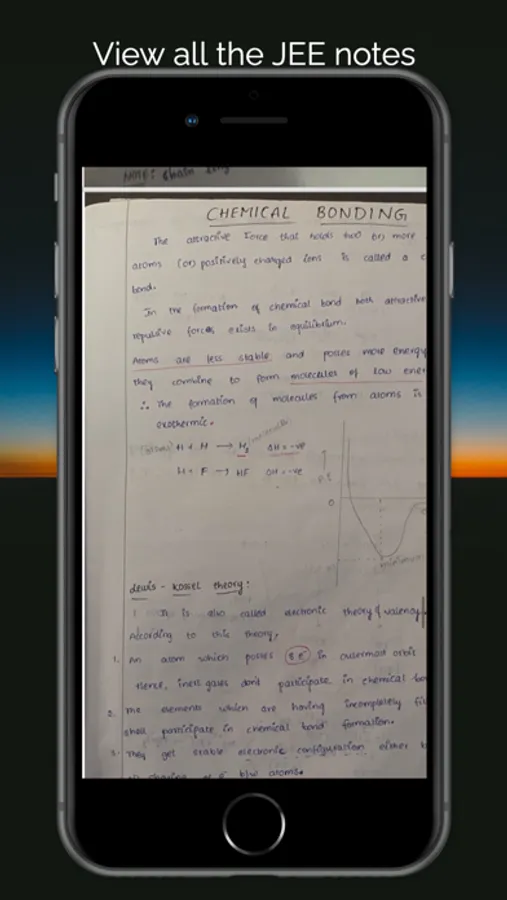 View all the JEE notes
Note: chain
CHEMICAL BONDING
The attractive Force that holds two or) more
atoms (or) positively charged ions is called a c
bond.
In the formation of chemical bond both attractive
repulsive forces exists in equilibrium.
Atoms are less stable and posses more energy
they combine to form molecules of low ener
∴ The formation of molecules from atoms is
exothermic.
(atoms) H + H → H2 (molecule) ΔH = -ve
H + F → HF ΔH = -ve
P.E
0
minimum
Lewis - kossel theory:
It is also called electronic theory of valency
According to this theory,
1. An atom which posses 8 e- in outermost orbit
Hence, inert gases don't participate in chemical bo
2. The elements which are having incompletely fil
shell participate in chemical bond formation.
3. They get stable electronic configuration either b
sharing of e- b/w atoms.